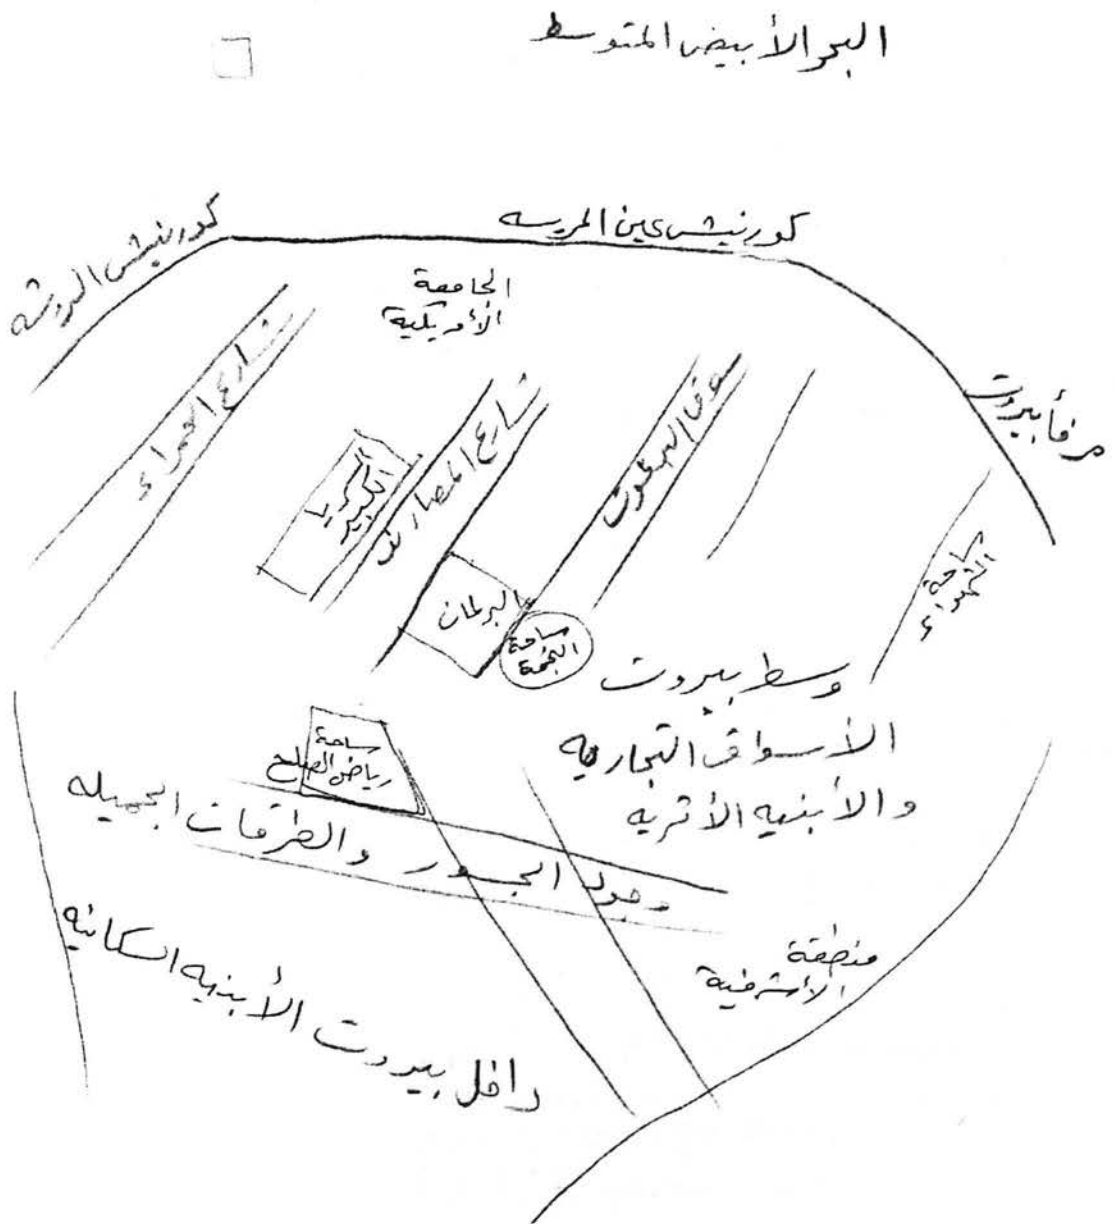 البحر الأبيض المتوسط
كورنيش عين المريسه
كورنيش الروشه
الجامعة
الأمريكية
مرفأ بيروت
شارع الحمراء
السرايا
الكبير
شارع المصارف
سوق
ساحة
الشهداء
البرلمان
ساحة
النجمة
وسط بيروت
الأسواق التجاريه
والأبنيه الأثريه
ساحة
رياض الصلح
وجود الجسور والطرقات الجميله
منطقة
الأشرفية
داخل بيروت الأبنيه السكانيه